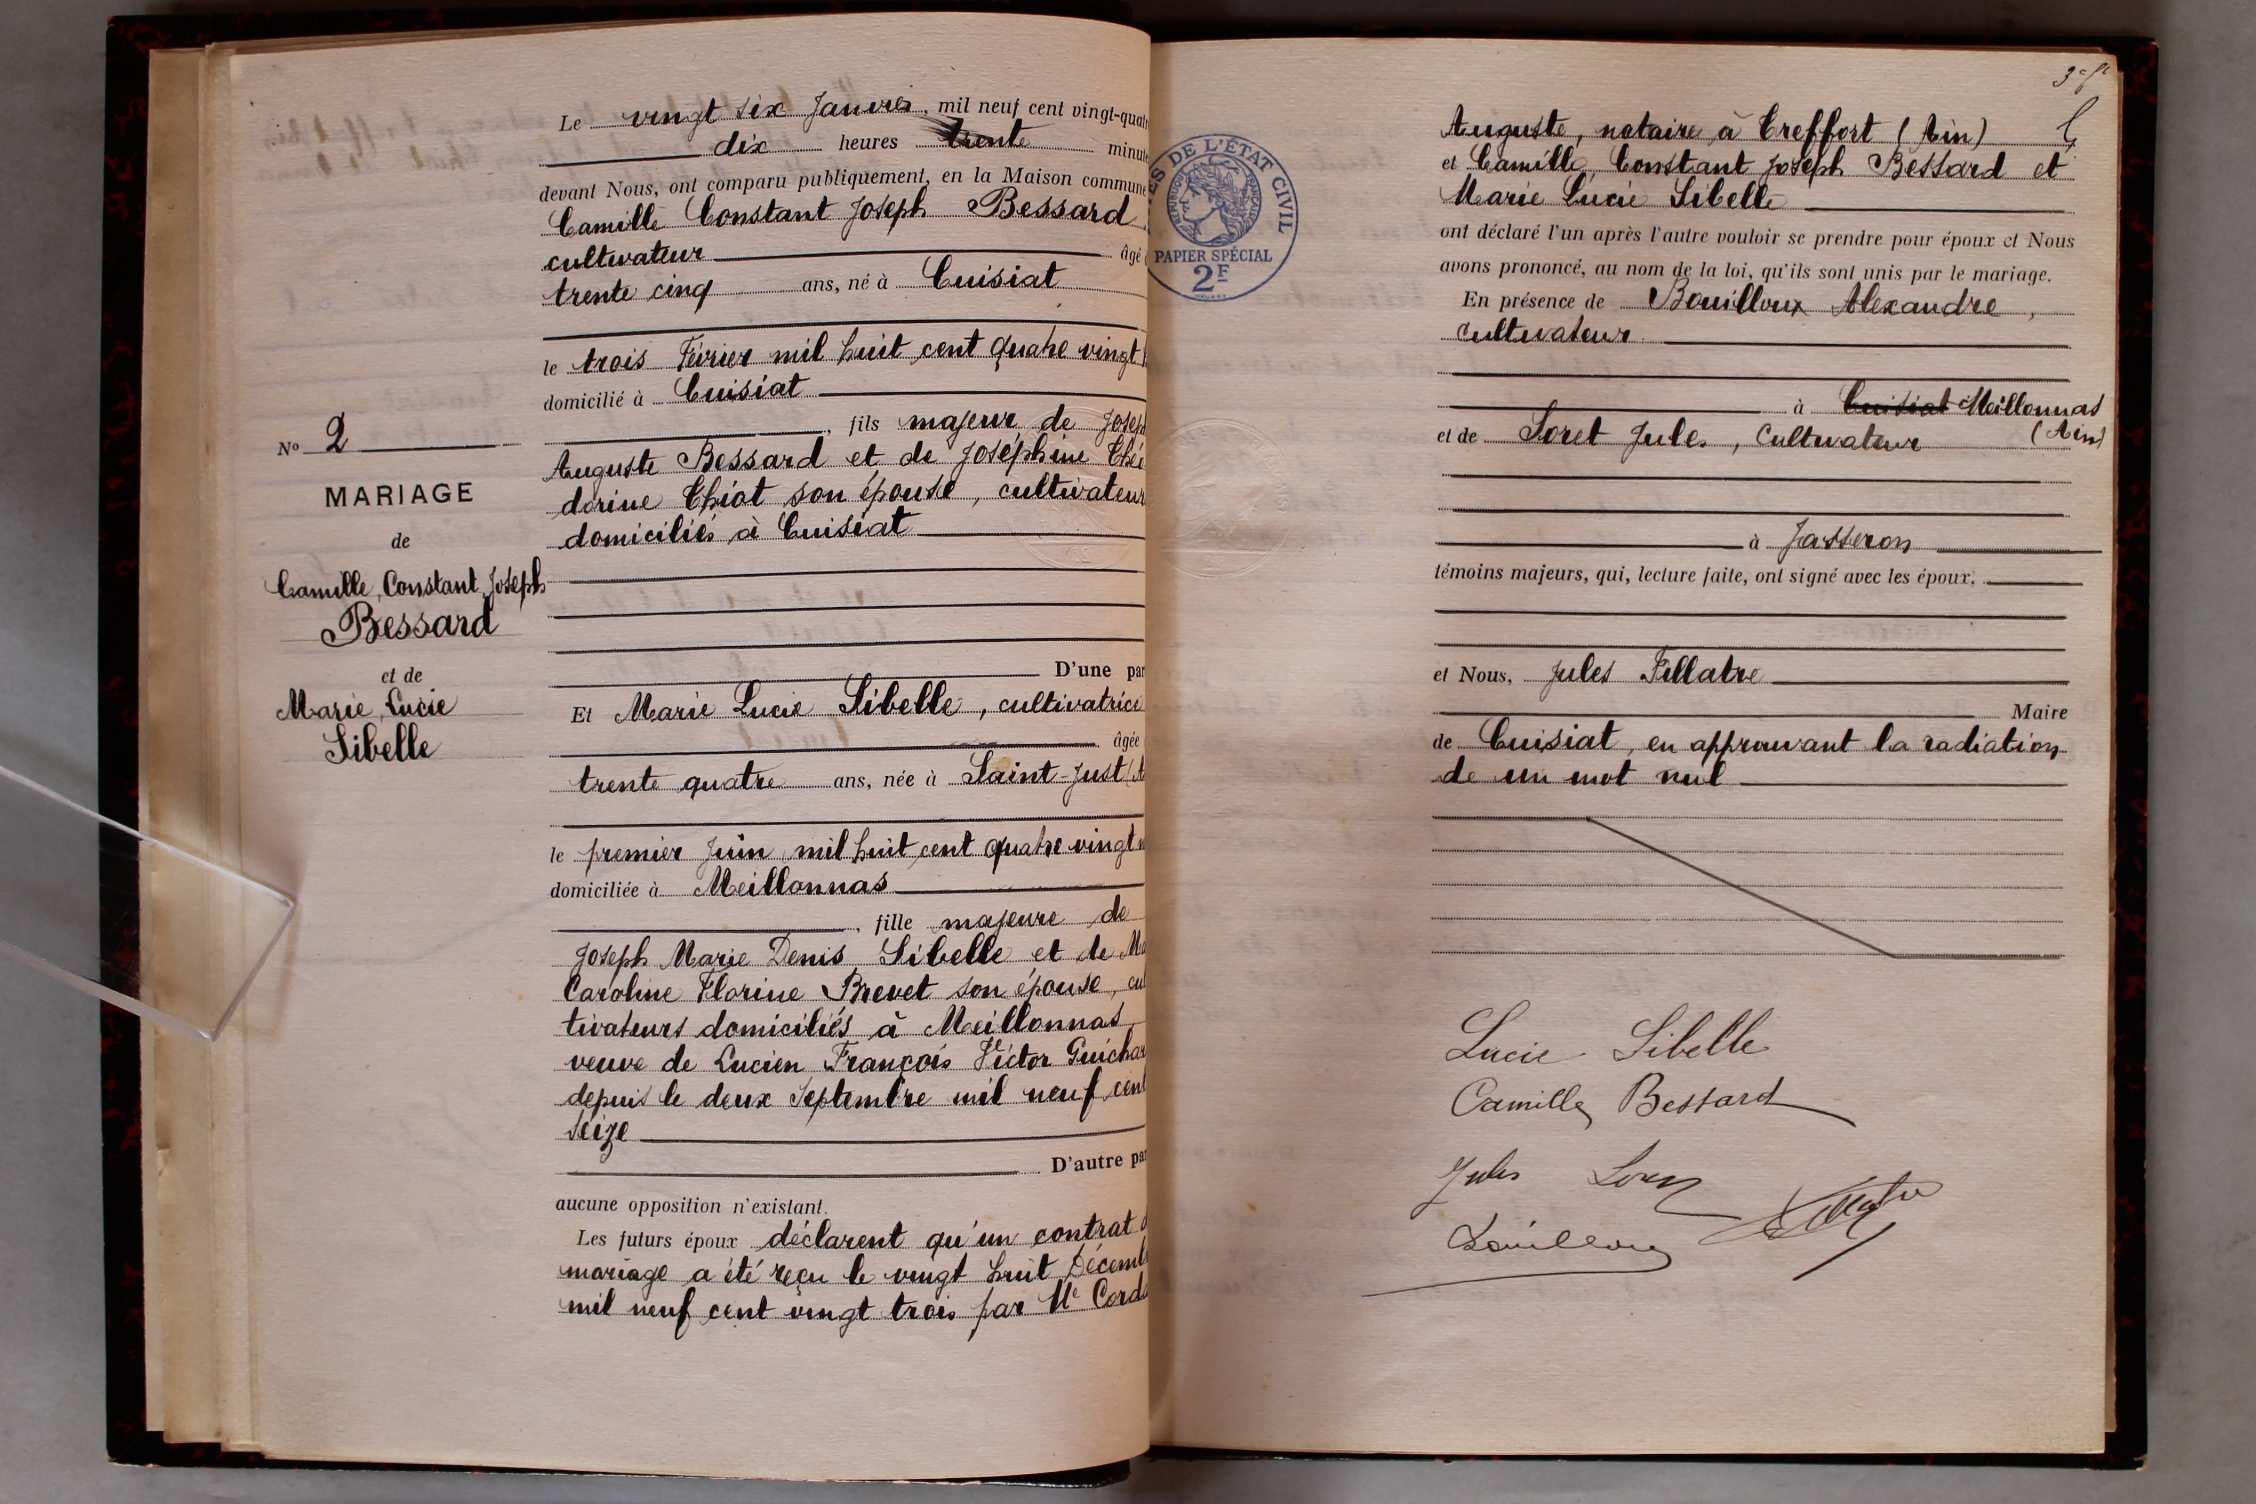 Le vingt six Janvier, mil neuf cent vingt-quat
dix heures trente minut
devant Nous, ont comparu publiquement, en la Maison commune
Camille Constant Joseph Bessard
cultivateur âgé
trente cinq ans, né à Cuisiat
le trois Février mil huit cent quatre vingt
domicilié à Cuisiat
, fils majeur de Josep
Auguste Bessard et de Joséphine Thé
dorine Chiat son épouse, cultivateur
domiciliés à Cuisiat
D'une par
Et Marie Lucie Sibelle, cultivatrice
âgée
trente quatre ans, née à Saint-Just (A
le premier Juin mil huit cent quatre vingt n
domiciliée à Meillonnas
, fille majeure de
Joseph Marie Denis Sibelle et de Ma
Caroline Florine Brevet son épouse, cul
tivateurs domiciliés à Meillonnas,
veuve de Lucien François Victor Guichar
depuis le deux Septembre mil neuf cent
seize
D'autre par
aucune opposition n'existant.
Les futurs époux déclarent qu'un contrat d
mariage a été reçu le vingt huit Décemb
mil neuf cent vingt trois par Me Cord
No 2
MARIAGE
de
Camille, Constant, Joseph
Bessard
et de
Marie, Lucie
Sibelle
DE L'ÉTAT CIVIL
PAPIER SPÉCIAL
2F
Auguste, notaire à Treffort (Ain)
et Camille, Constant Joseph Bessard et
Marie Lucie Sibelle
ont déclaré l'un après l'autre vouloir se prendre pour époux et Nous
avons prononcé, au nom de la loi, qu'ils sont unis par le mariage.
En présence de Bouilloux Alexandre,
cultivateur
à Cuisiat Meillonnas
(Ain)
et de Loret Jules, cultivateur
à Jasseron
témoins majeurs, qui, lecture faite, ont signé avec les époux,
et Nous, Jules Fillatre
Maire
de Cuisiat, en approuvant la radiation
de un mot nul
Lucie Sibelle
Camille Bessard
Jules
Bouilloux